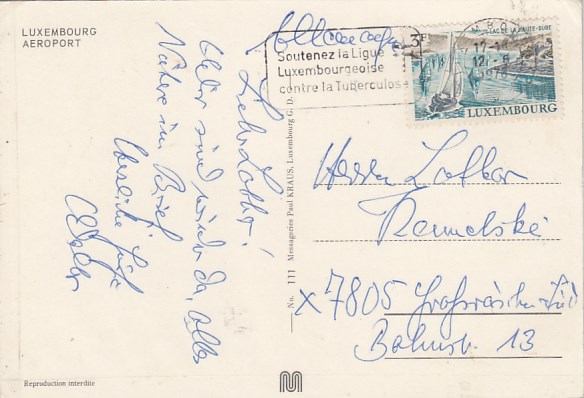 LUXEMBOURG
AEROPORT
Lieber Lothar!
sind wieder da, alles
Nähere im Brief
Herzliche Grüße
Soutenez la Ligue
Luxembourgeoise
contre la Tuberculose
3F
LAC DE LA HAUTE-SURE
LUXEMBOURG
Herrn Lothar
X 7805 Großräschen-Süd
Bahnstr. 13
No. 111 Messageries Paul KRAUS, Luxembourg G. D.
Reproduction interdite